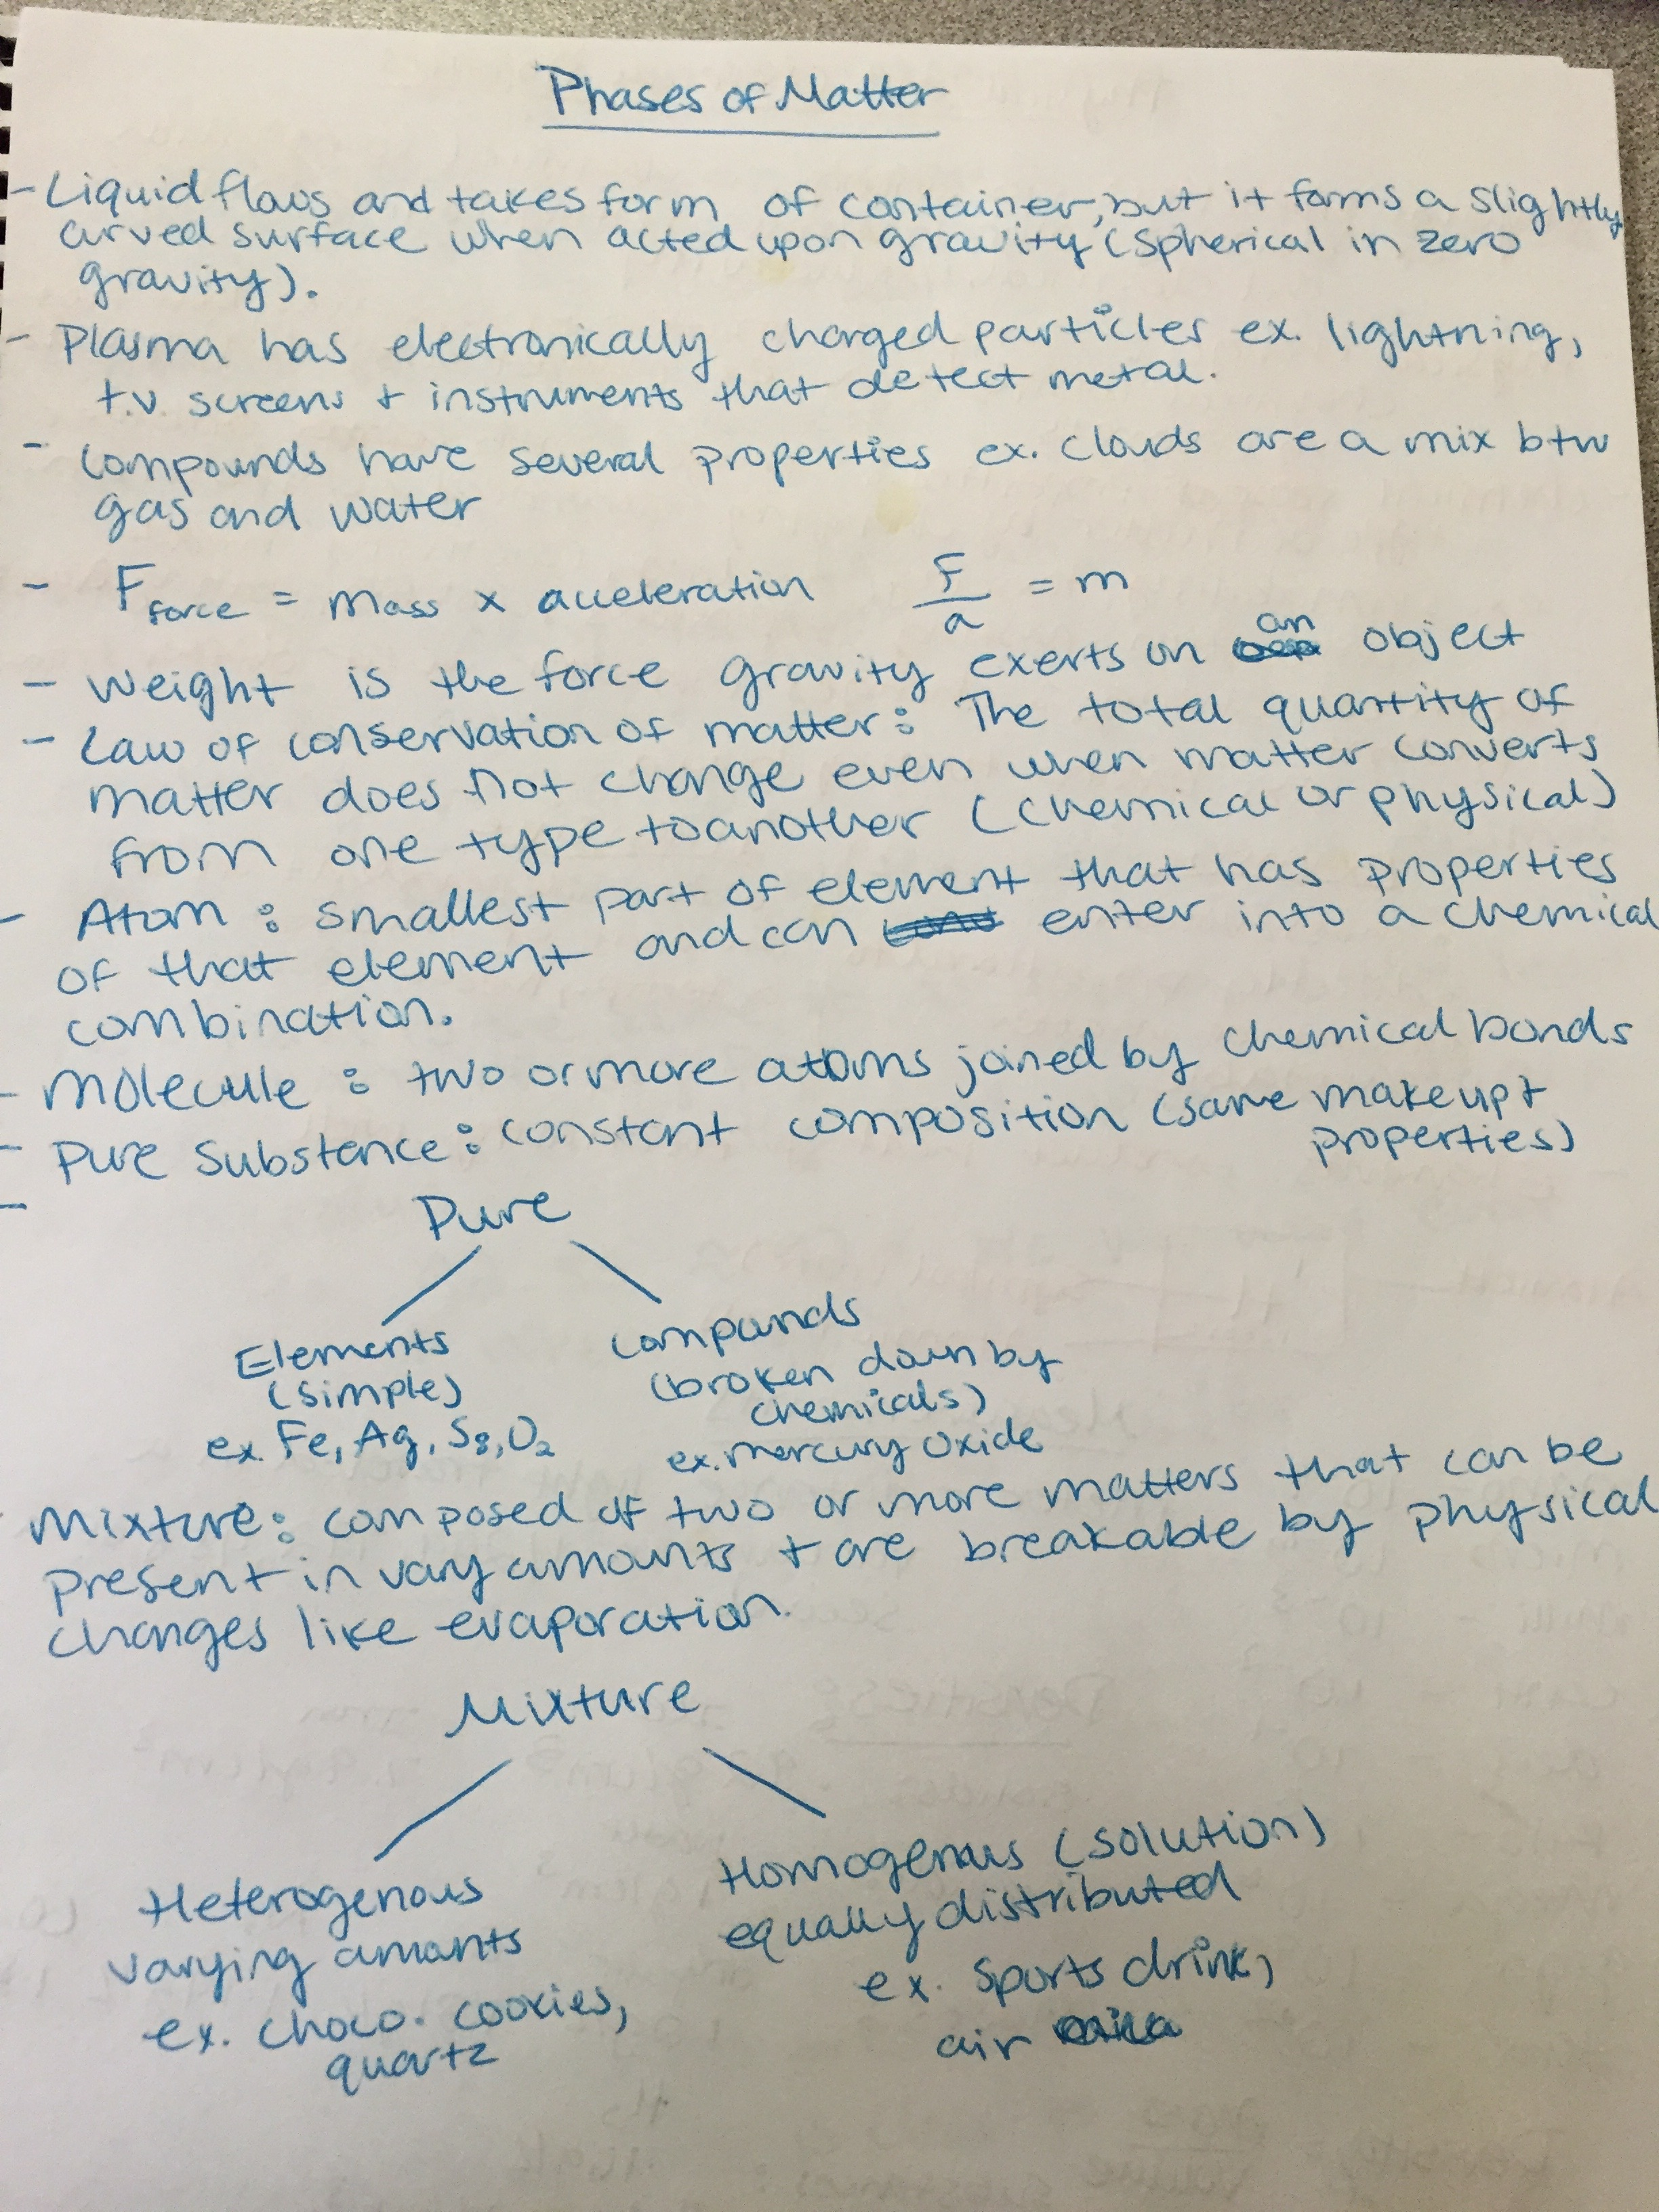 Phases of Matter
- Liquid flows and takes form of container, but it forms a slightly
curved surface when acted upon gravity (spherical in zero
gravity).
- Plasma has electronically charged particles ex. lightning,
t.v. screens + instruments that detect metal.
- Compounds have several properties ex. clouds are a mix btw
gas and water
- F force = mass x acceleration F/a = m
- Weight is the force gravity exerts on an object
- Law of conservation of matter: The total quantity of
matter does not change even when matter converts
from one type to another (chemical or physical)
- Atom: smallest part of element that has properties
of that element and can enter into a chemical
combination.
- Molecule: two or more atoms joined by chemical bonds
- Pure Substance: constant composition (same makeup +
properties)
-
Pure
Elements
(simple)
ex. Fe, Ag, S8, O2
Compounds
(broken down by
chemicals)
ex. mercury oxide
Mixture: composed of two or more matters that can be
present in vary amounts + are breakable by physical
changes like evaporation.
Mixture
Heterogenous
varying amounts
ex. choco. cookies,
quartz
Homogenous (solution)
equally distributed
ex. sports drink,
air